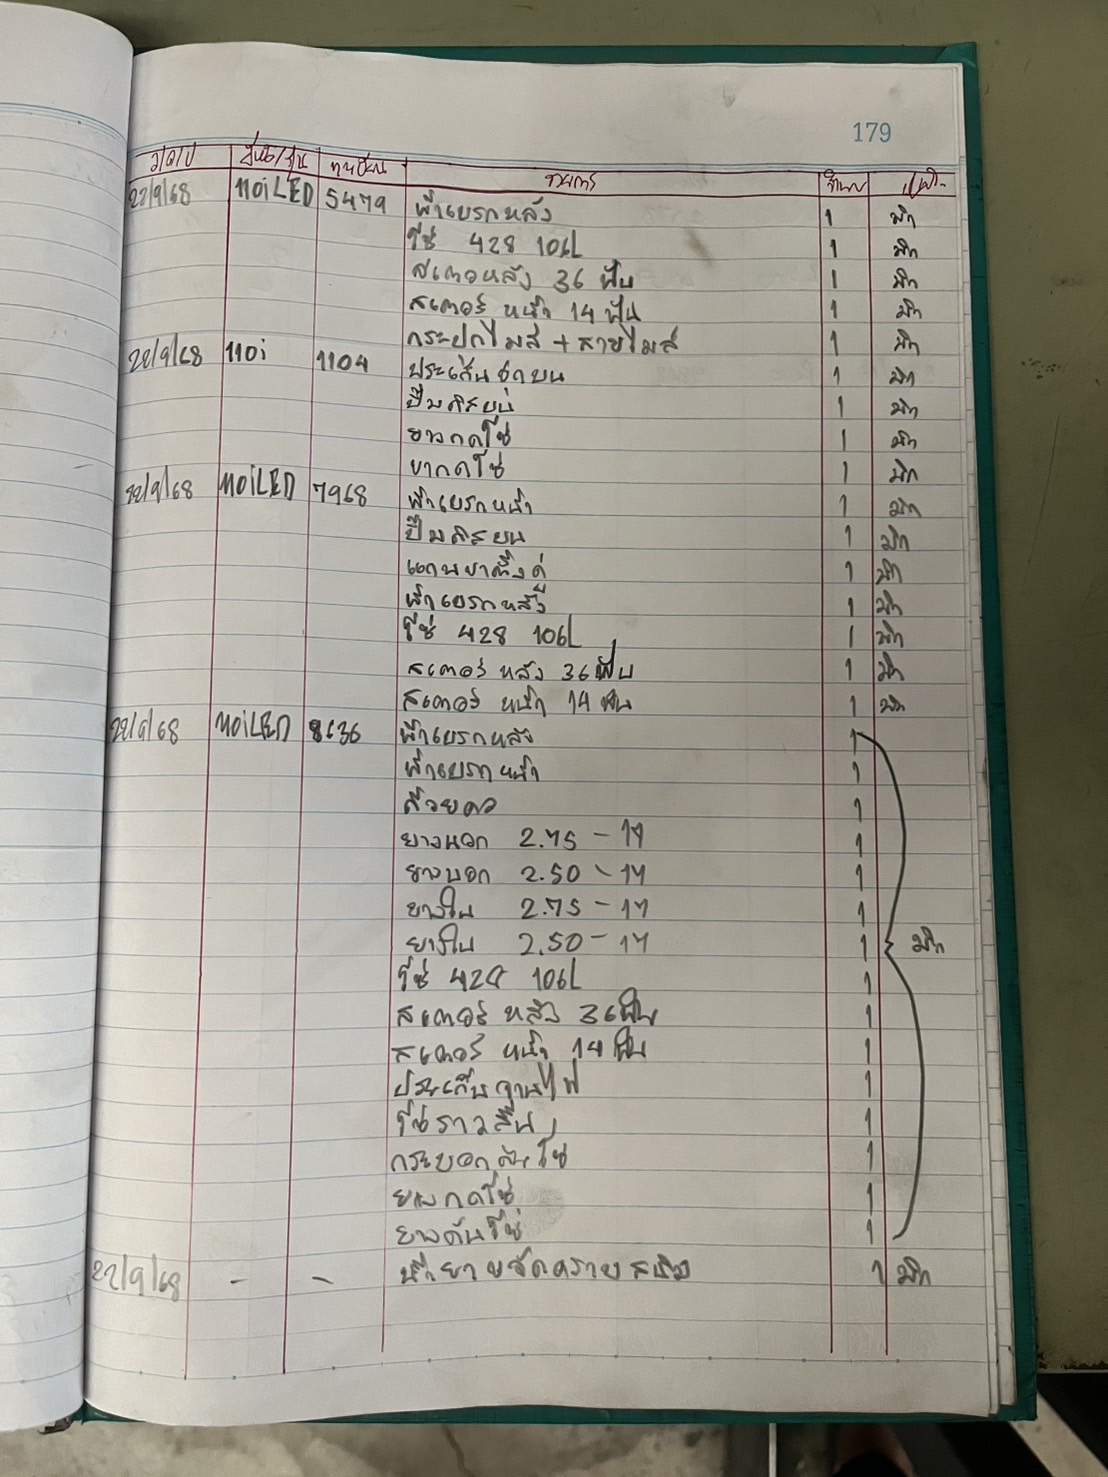 179
ว/ด/ป รุ่นรถ/รุ่น ทะเบียน รายการ จำนวน ผู้เบิก
22/9/68 110iLED 5479 ผ้าเบรกหลัง 1 มิก
โซ่ 428 106L 1 มิก
สเตอหลัง 36 ฟัน 1 มิก
สเตอร์ หน้า 14 ฟัน 1 มิก
กระปุกไมล์ + สายไมล์ 1 มิก
22/9/68 110i 1104 ประเก็นชุดบน 1 มิก
ปั๊มดิสบน 1 มิก
ยางกดโซ่ 1 มิก
ยากดโซ่ 1 มิก
22/9/68 110iLED 7968 ผ้าเบรกหน้า 1 มิก
ปั๊มดิสบน 1 มิก
แกนขาตั้งคู่ 1 มิก
ผ้าเบรกหลัง 1 มิก
โซ่ 428 106L 1 มิก
สเตอร์ หลัง 36 ฟัน 1 มิก
สเตอร์ หน้า 14 ฟัน 1 มิก
22/9/68 110iLED 8636 ผ้าเบรกหลัง 1
ผ้าเบรกหน้า 1
ถ้วยคอ 1
ยางนอก 2.75 - 17 1
ยางนอก 2.50 - 17 1
ยางใน 2.75 - 17 1
ยางใน 2.50 - 17 1 มิก
โซ่ 428 106L 1
สเตอร์ หลัง 36 ฟัน 1
สเตอร์ หน้า 14 ฟัน 1
ประเก็นจานไฟ 1
โซ่ราวลิ้น 1
กระบอกดันโซ่ 1
ยางกดโซ่ 1
ยางดันโซ่ 1
22/9/68 - - น้ำยาขจัดคราบสนิม 1 มิก